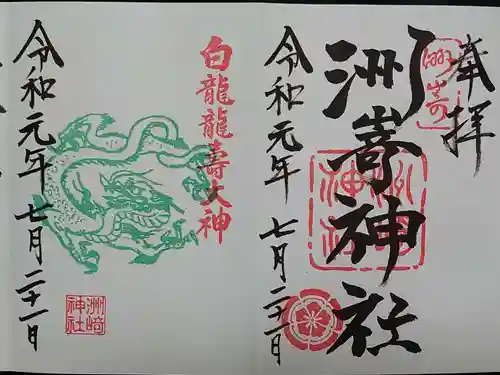 奉拝
洲嵜
洲嵜神社
洲崎神社
令和元年 七月二十一日
白龍龍壽大神
令和元年 七月二十一日
洲崎
神社